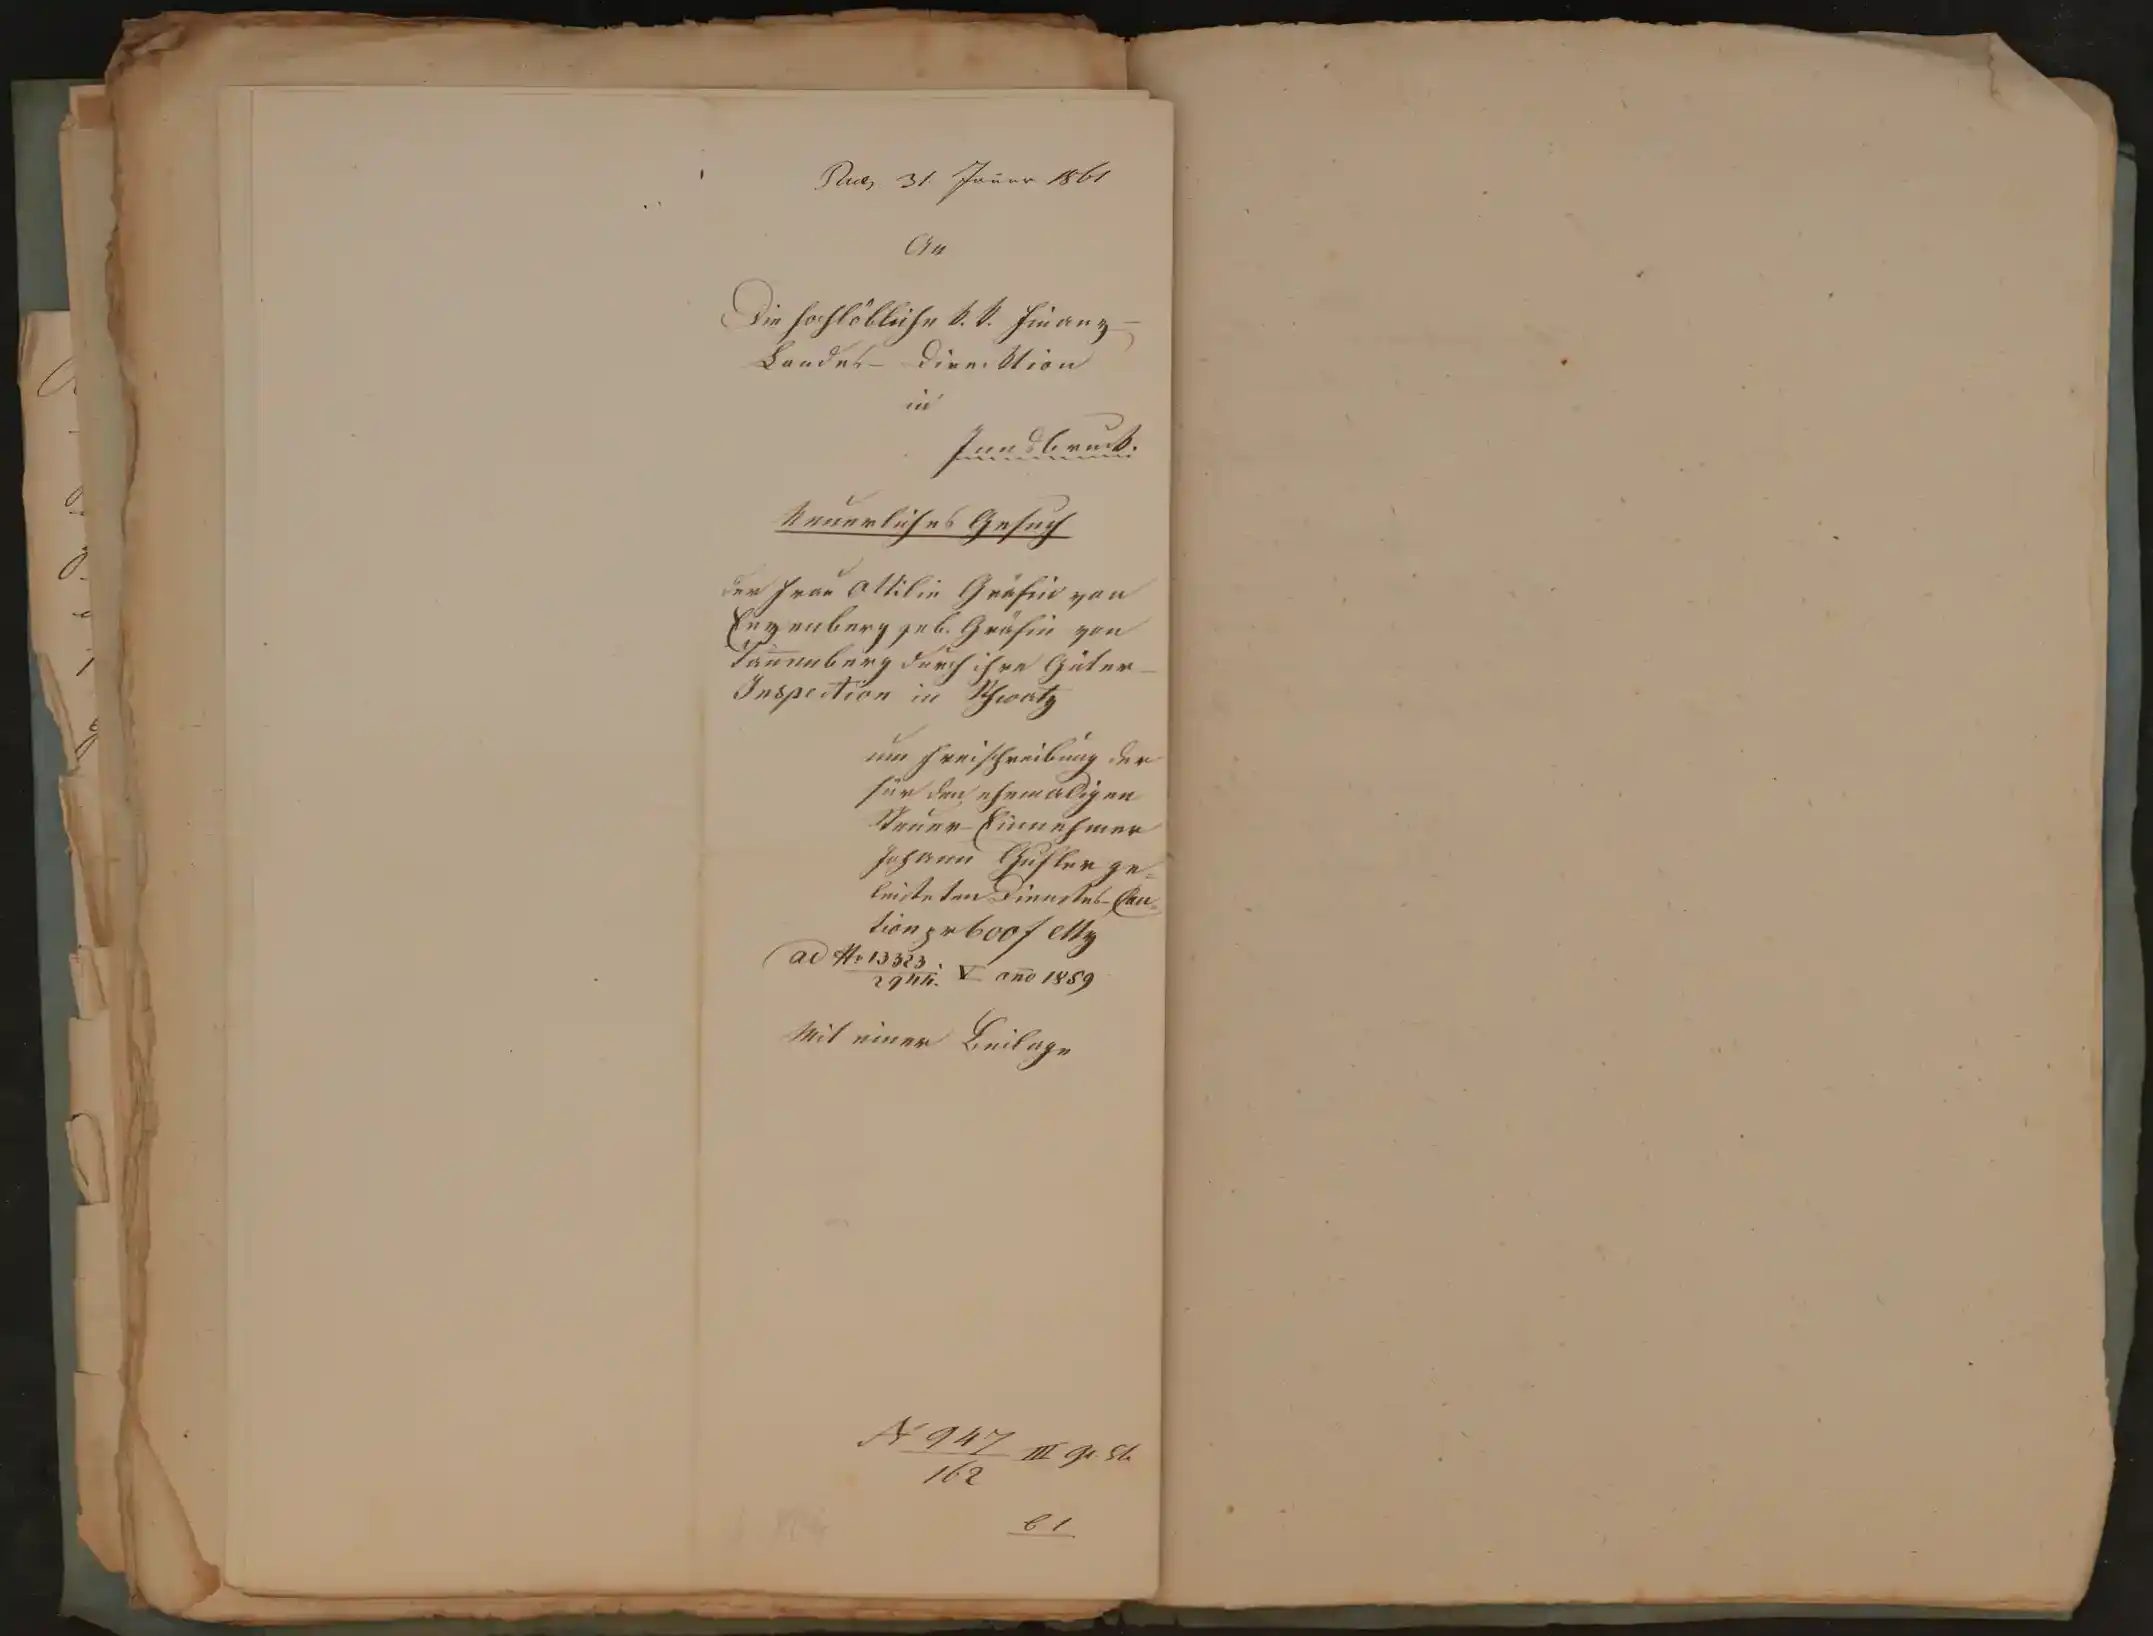 31. Jäner 1861
An
Die hochlöbliche k. k. Finanz-
Landes-Direktion
in
Innsbruck.
Neuerliches Gesuch
der Frau Ottilie Gräfin von
Enzenberg geb. Gräfin von
Tannenberg durch ihre Güter-
Inspection in Schwatz
um Freischreibung der
für den ehemaligen
Steuer-Einnehmer
Johann Gufler ge-
leisteten Dienstes-Cau-
tion pr 600 f CMz
ad Nr. 13323
2944. V ano 1859
Mit einer Beilage
N 947
162 III Gr. St.
61